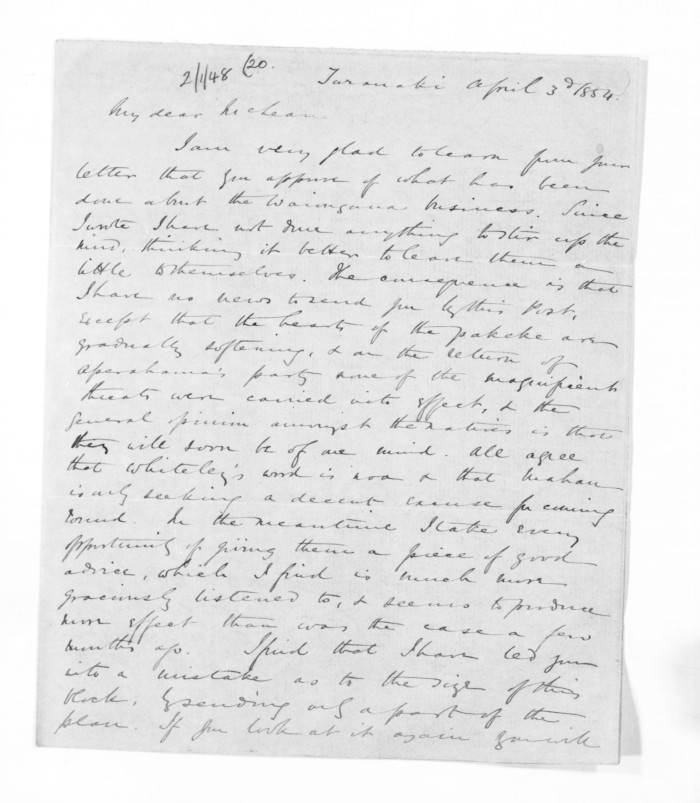 2/1/48 (20.
Taranaki April 3d 1854.
My dear McLean
I am very glad to learn from your
letter that you approve of what has been
done about the Waiongana business. Since
I wrote I have not done anything to stir up the
mind, thinking it better to leave them a
little to themselves. The consequence is that
I have no news to send you by this Post,
except that the hearts of the pakeke are
gradually softening, & on the return of
Aperahama's party none of the magnificent
threats were carried into effect, & the
general opinion amongst the natives is that
they will soon be of one mind. All agree
that Whiteley's word is noa & that Mahau
is only seeking a decent excuse for coming
round. In the meantime I take every
opportunity of giving them a piece of good
advice, which I find is much more
graciously listened to, & seems to produce
more effect than was the case a few
months ago. I find that I have led you
into a mistake as to the size of this
block, by sending only a part of the
plan. If you look at it again you will